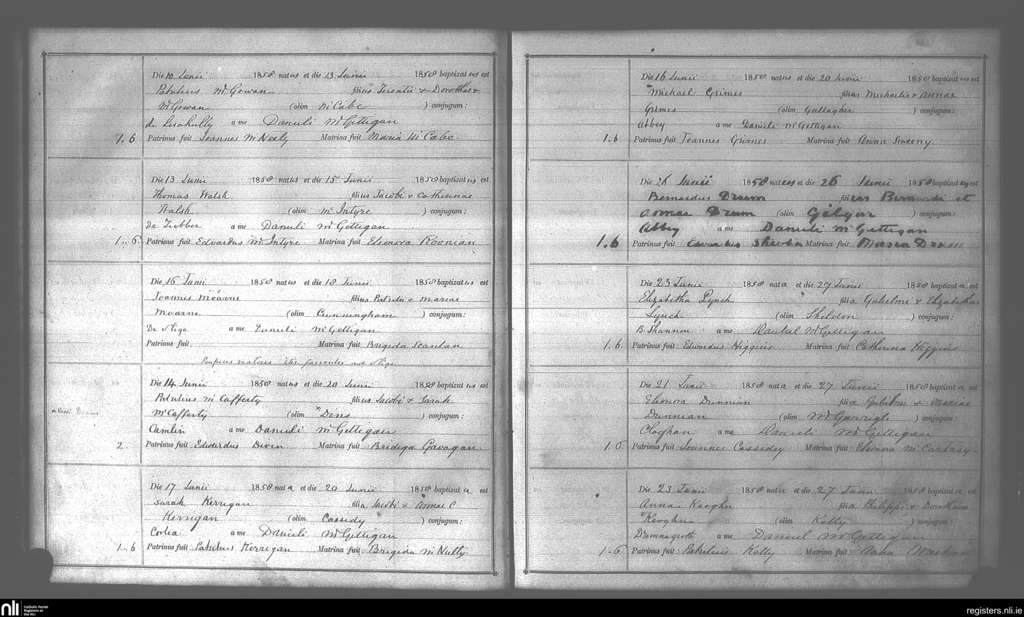 Die 10 Junii 1858 natus et die 13 Junii 1858 baptizatus est
Patritius McGowan filius Terentii & Dorothea
McGowan (olim McCabe) conjugum:
de a me Danieli McGettigan
1.. 6 Patrinus fuit Joannes McNeely Matrina fuit Maria McCabe
Die 13 Junii 1858 natus et die 15 Junii 1858 baptizatus est
Thomas Walsh filius Jacobi & Catherinae
Walsh (olim McIntyre) conjugum:
De Tubber a me Danieli McGettigan
1.. 6 Patrinus fuit Edwardus McIntyre Matrina fuit Eleonora Roonian
Die 16 Junii 1858 natus et die 18 Junii 1858 baptizatus est
Joannes Moarne filius Patritii & Mariae
Moarne (olim Cunningham) conjugum:
De Sligo a me Danieli McGettigan
Patrinus fuit Matrina fuit Brigida Scanlan
Die 14 Junii 1858 natus et die 20 Junii 1858 baptizatus est
Patritius McCafferty filius Jacobi & Sarah
McCafferty (olim "Dins) conjugum:
Camlin a me Danieli McGettigan
2. Patrinus fuit Edwardus Diven Matrina fuit Bridiga Gavagan
Die 17 Junii 1858 nata et die 20 Junii 1858 baptizata est
Sarah Kerrigan filia Jacobi & Annae C
Kerrigan (olim Cassidy) conjugum:
Corlea a me Danieli McGettigan
1.. 6 Patrinus fuit Patritius Kerrigan Matrina fuit Brigida McNulty
Die 16 Junii 1858 natus et die 20 Junii 1858 baptizatus est
"Michael Grimes filius Michaelis & Annae
Grimes (olim Gallagher) conjugum:
Abbey a me Danieli McGettigan
1.6 Patrinus fuit Joannes Grimes Matrina fuit Anna Sweeny
Die 26 Junii 1858 natus et die 26 Junii 1858 baptizatus est
Bernardus Drum filius Bernardi et
Annae Drum (olim Gilgar) conjugum:
Abbey a me Danieli McGettigan
1.6 Patrinus fuit Matrina fuit Maria Drum
Die 23 Junii 1858 nata et die 27 Junii 1858 baptizata est
Elizabetha Lynch filia Gulielmi & Elizabethae
Lynch (olim Sheldon) conjugum:
B. Shannon a me Danieli McGettigan
1.6. Patrinus fuit Edwardus Higgins Matrina fuit Catherina Higgins
Die 21 Junii 1858 nata et die 27 Junii 1858 baptizata est
Elionora Dunnian filia Gulielmi & Mariae
Dunnian (olim McGarrigle) conjugum:
Cloghan a me Danieli McGettigan
1.6 Patrinus fuit Joannes Cassidy Matrina fuit Elinora McCartney
Die 23 Junii 1858 nata et die 27 Junii 1858 baptizata est
Anna Keoghn filia Philippi & Dorotheae
"Keoghn (olim Kelly) conjugum:
a me Danieli McGettigan
1..6 Patrinus fuit Patritius Kelly Matrina fuit Anna
nli Catholic Parish Registers at the NLI
registers.nli.ie